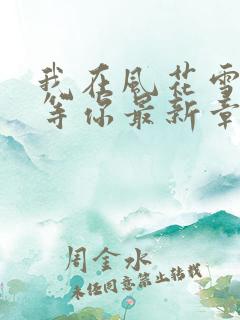 我在风花雪
等你最新章
周金水
未经同意禁止转载